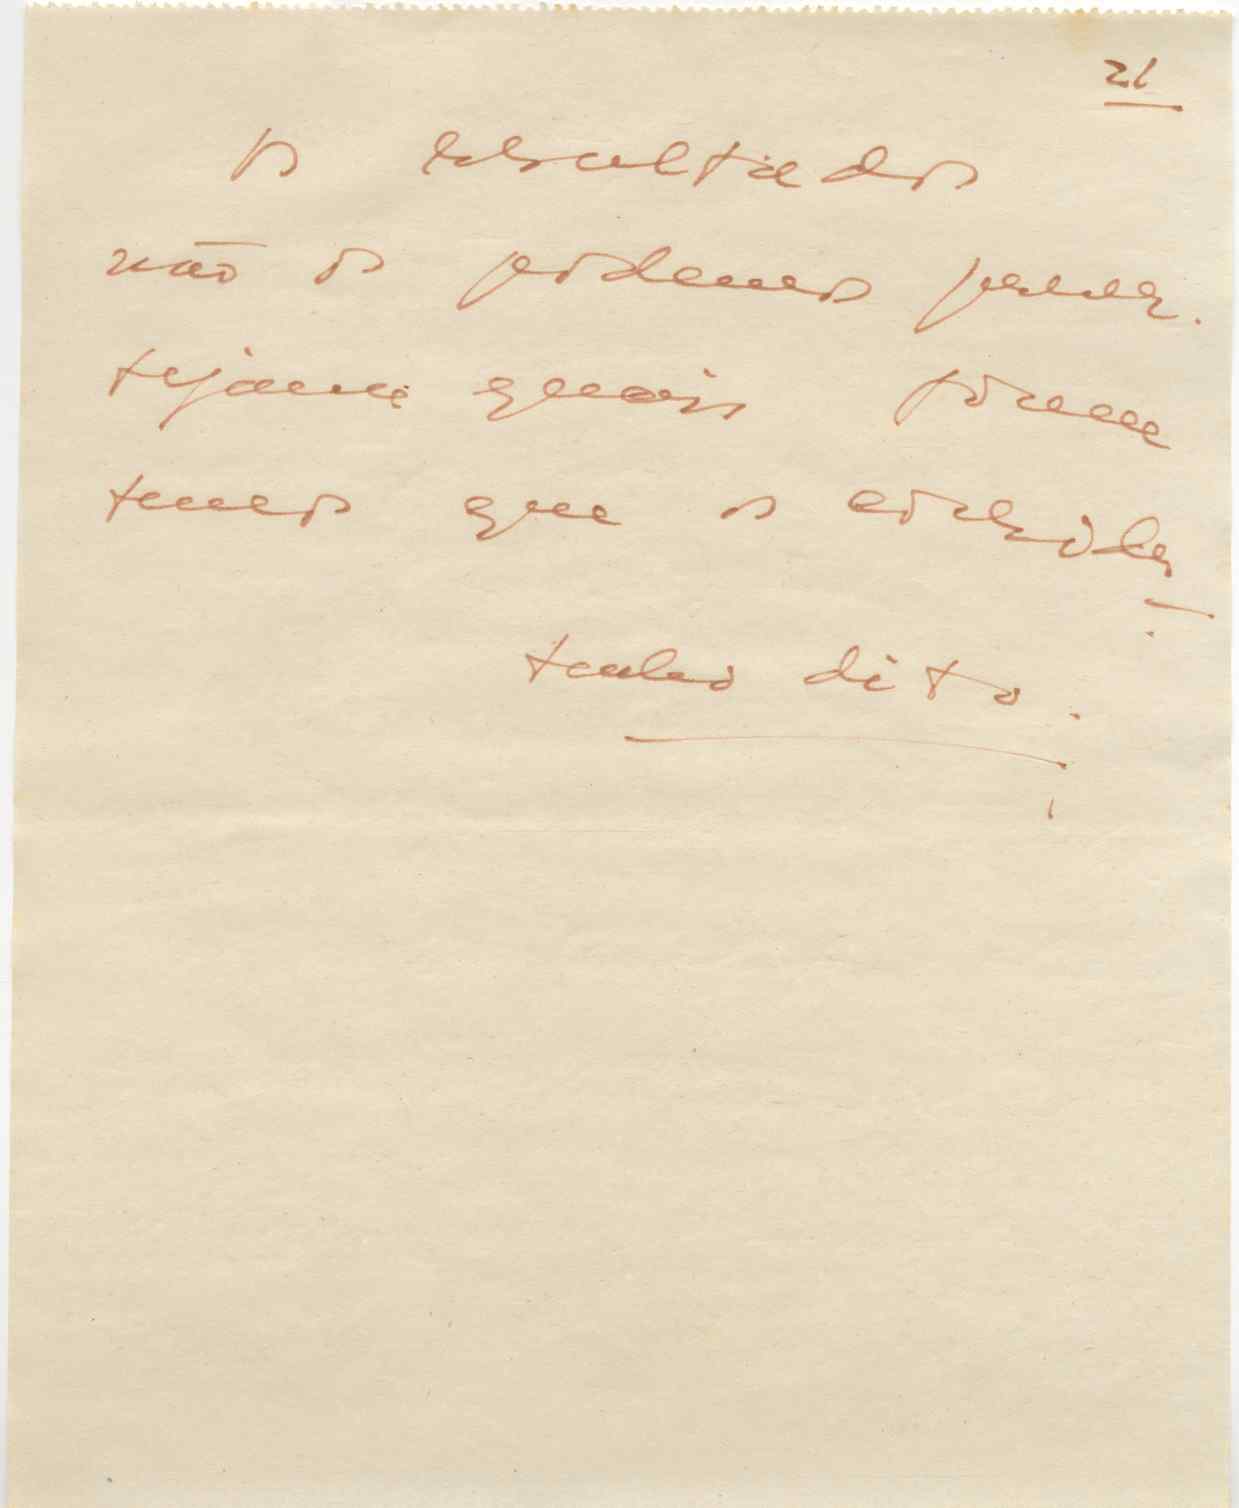 21
Os resultados
não os podemos prever.
sejam quais forem
temos que os acolher
tenho dito.